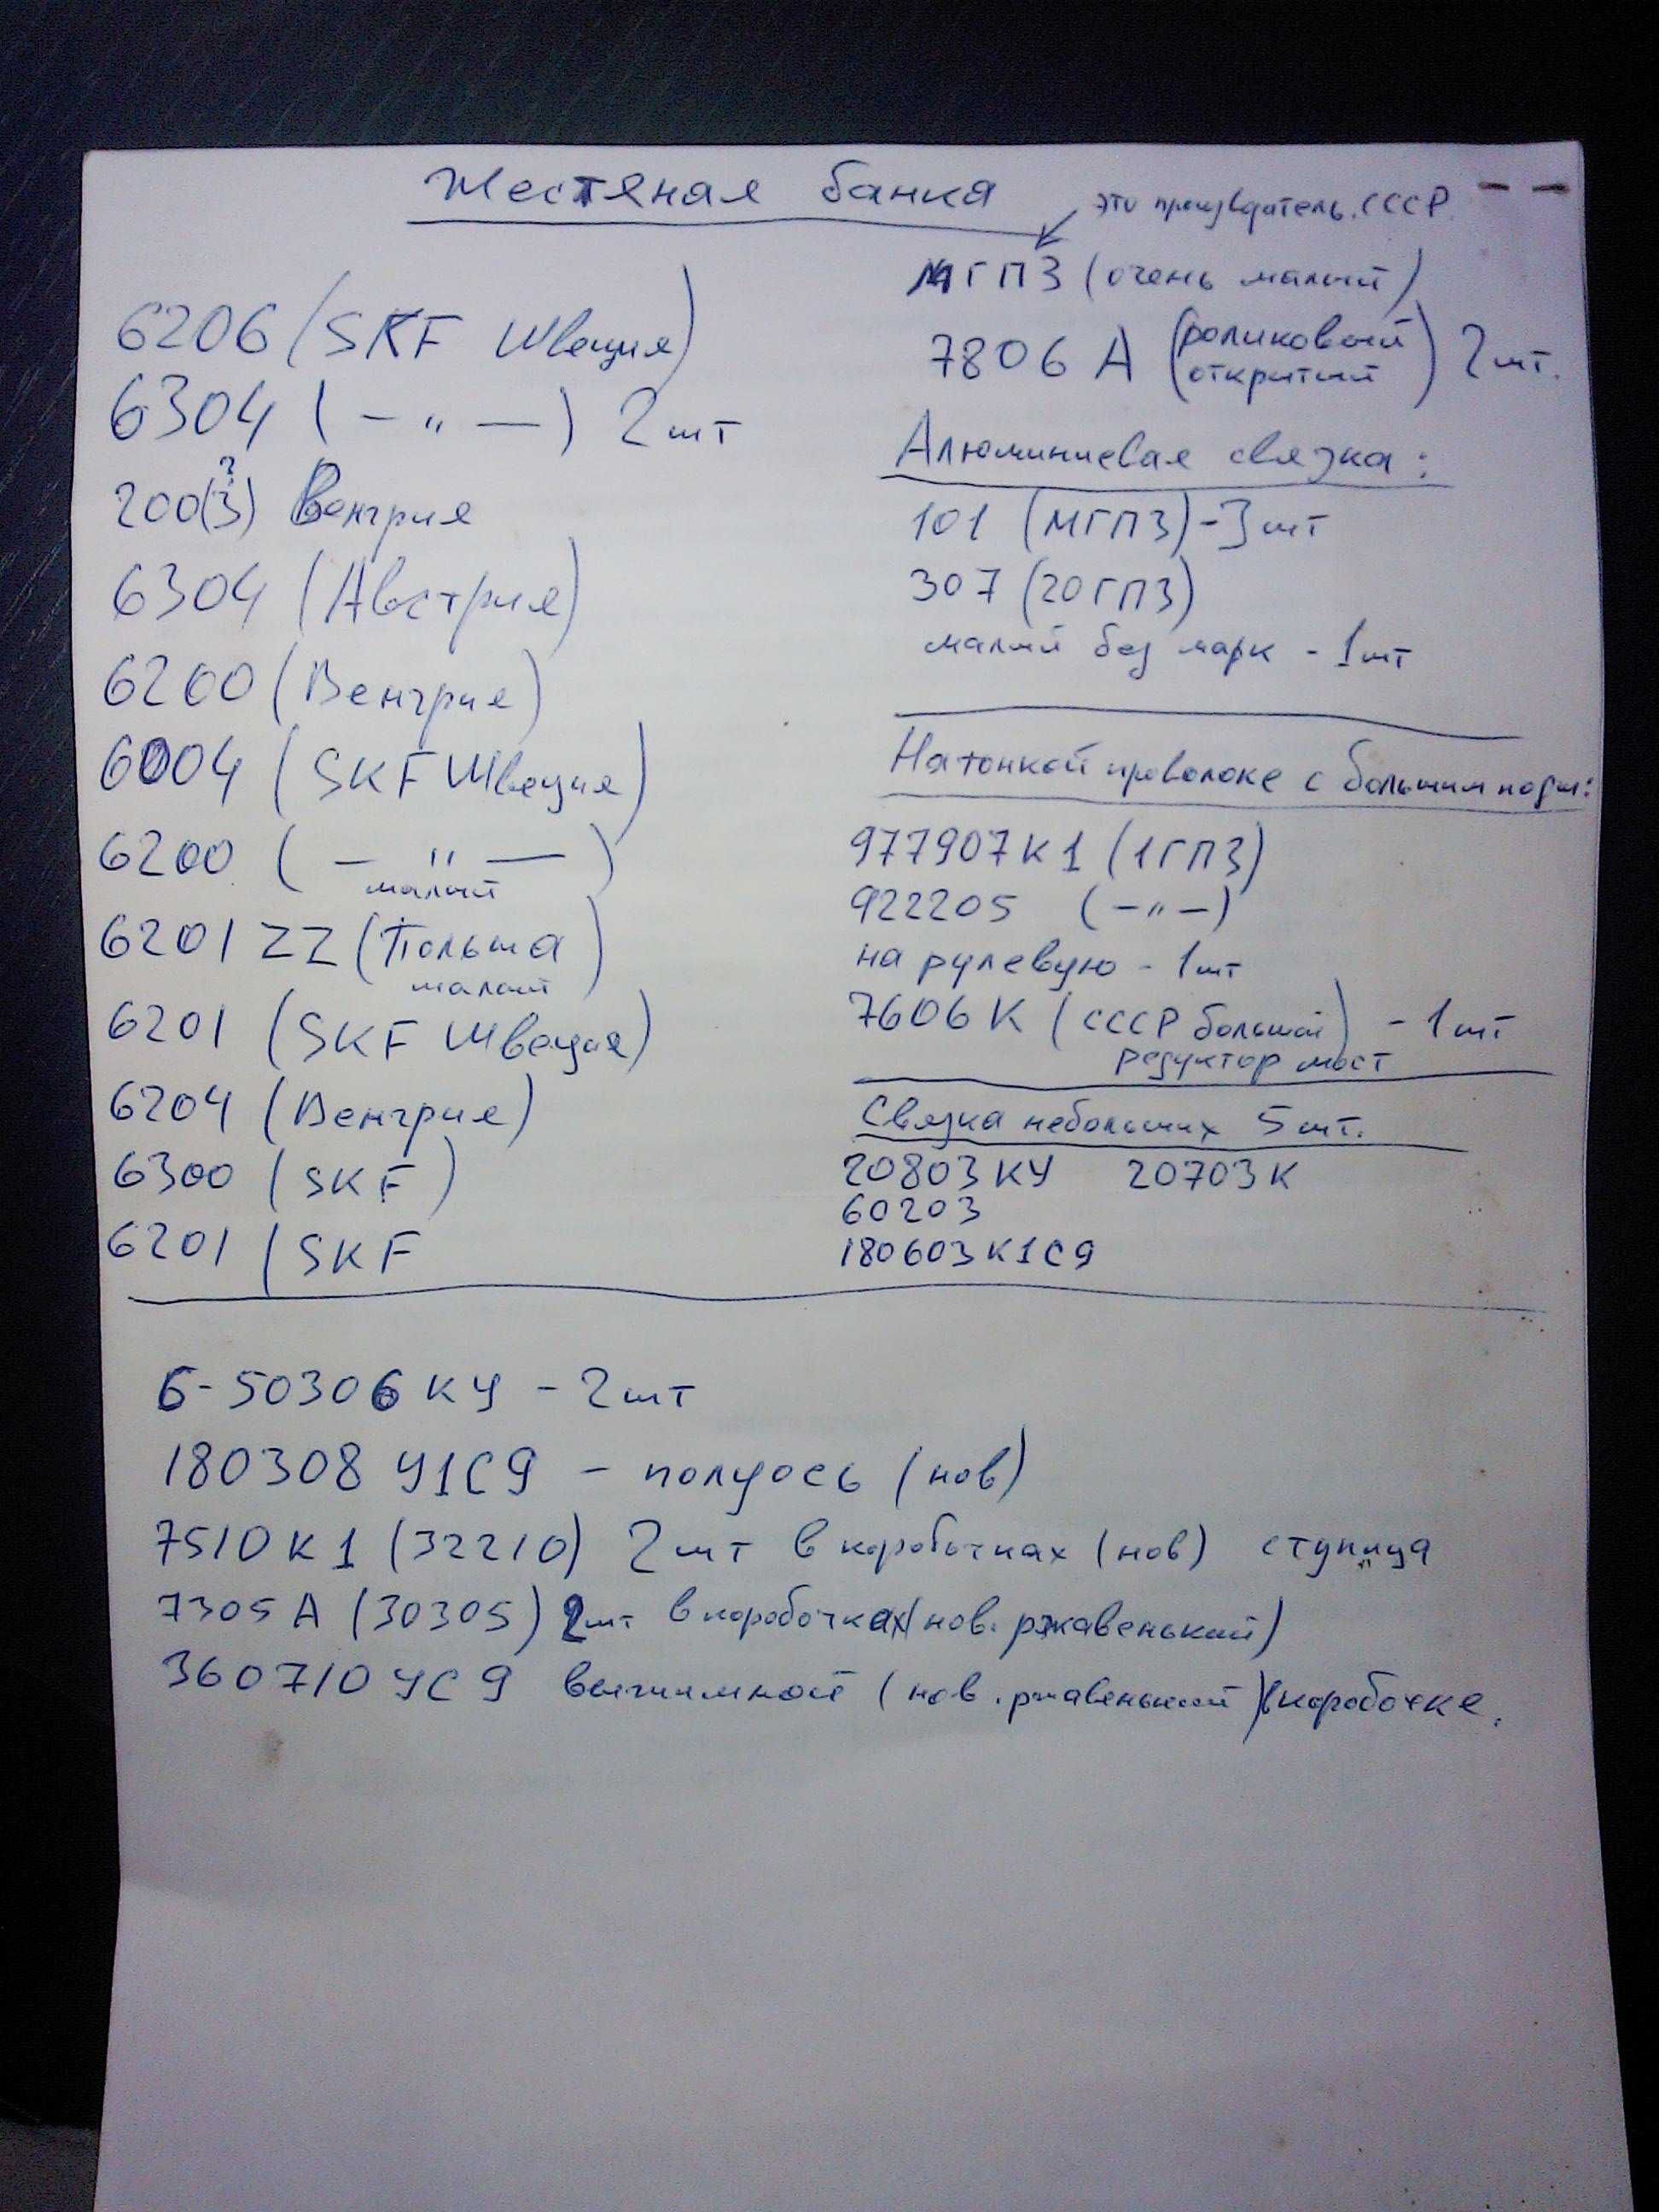 Жестяная банка
6206 (SKF Швеция)
6304 ( — " — ) 2 шт
?
200(3) Венгрия
6304 (Австрия)
6200 (Венгрия)
6004 (SKF Швеция)
6200 ( — " — )
малый
6201 ZZ (Польша)
малый
6201 (SKF Швеция)
6204 (Венгрия)
6300 (SKF)
6201 (SKF
это производитель. СССР
МГПЗ (очень малый)
7806 А (роликовый
открытый) 2 шт.
Алюминиевая связка:
101 (МГПЗ) - 3 шт
307 (20ГПЗ)
малый без марк - 1 шт
На тонкой проволоке с большим
977907К1 (1ГПЗ)
922205 ( — " — )
на рулевую - 1 шт
7606К (СССР большой) - 1 шт
редуктор мост
Связка небольших 5 шт.
20803КУ 20703К
60203
180603К1С9
6-50306КУ - 2 шт
180308 У1С9 - полуось (нов)
7510К1 (32210) 2 шт в коробочках (нов) ступица
7305А (30305) 2 шт в коробочках (нов. ржавенький)
360710УС9 выжимной (нов. ржавенький) в коробочке.